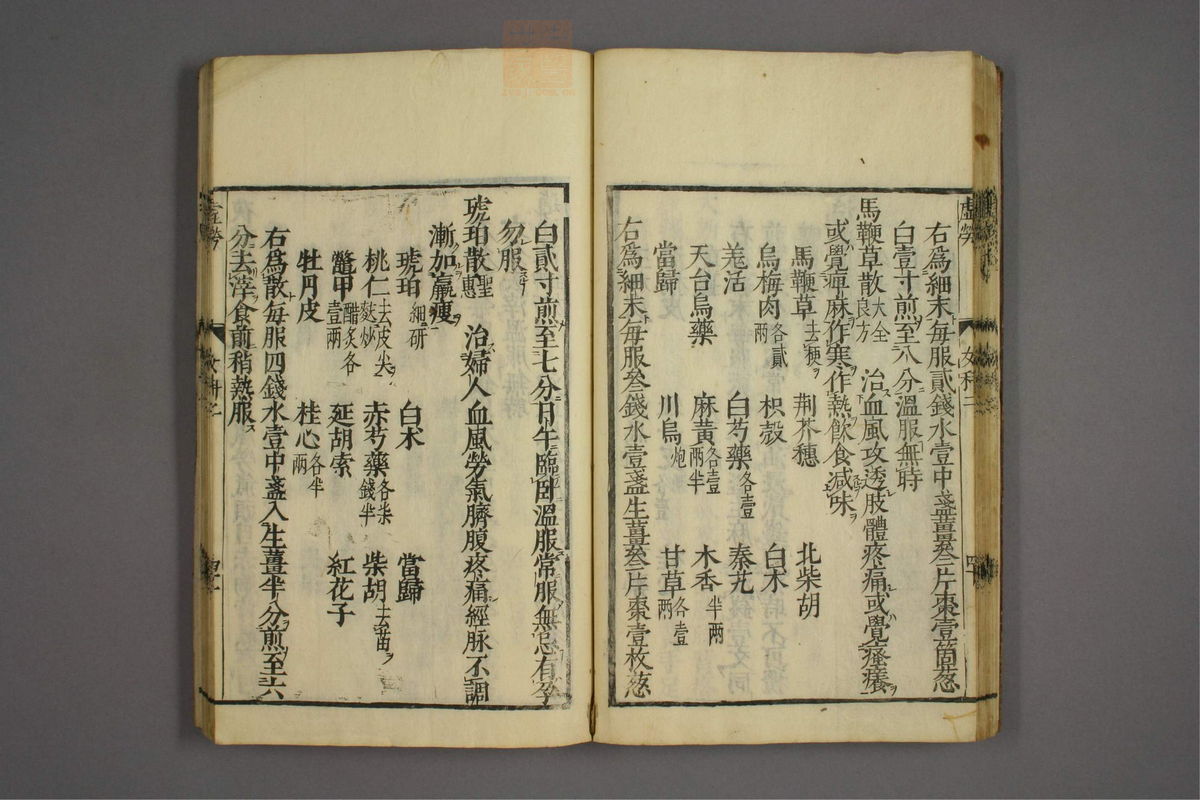 右爲細末每服貳錢水壹中盞薑叄片棗壹箇葱
白壹寸煎至八分溫服無時
馬鞭草散大全良方 治血風攻透肢體疼痛或覺瘙癢
或覺痺麻作寒作熱飲食減味
馬鞭草去梗 荊芥穗 北柴胡
烏梅肉各貳兩 枳殼 白朮
羌活 白芍藥各壹 秦艽
天台烏藥 麻黃各壹兩半 木香半兩
當歸 川烏炮 甘草各壹兩
右爲細末每服叄錢水壹盞生薑叄片棗壹枚葱
白貳寸煎至七分日午臨卧溫服常服無忌有孕
勿服
琥珀散聖惠 治婦人血風勞氣臍腹疼痛經脉不調
漸加羸瘦
琥珀細研 白朮 當歸
桃仁去皮尖麩炒 赤芍藥各柒錢半 柴胡去苗
鼈甲醋炙各壹兩 延胡索 紅花子
牡丹皮 桂心各半兩
右爲散每服四錢水壹中盞入生薑半分煎至六
分去滓食前稍熱服
虛勞
女科二